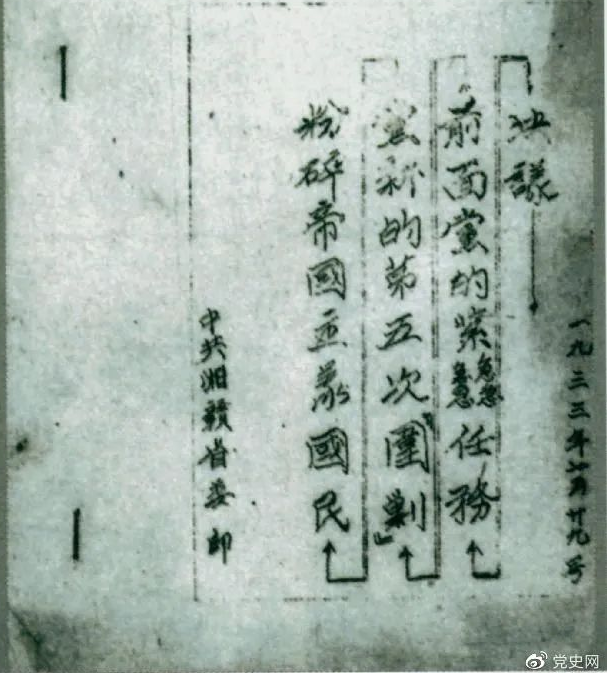 粉碎帝國主義國民
黨新的第五次『圍剿』
前面黨的緊急任務
決議
一九三三年七月廿九号
中共湘贛省委印
党史网